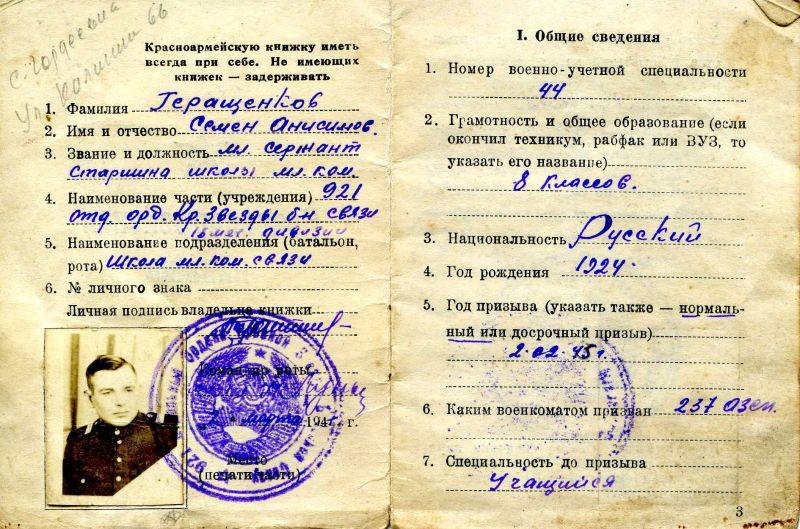 с. Гордеевка
Ул. Калинина 66
Красноармейскую книжку иметь
всегда при себе. Не имеющих
книжек — задерживать
1. Фамилия Геращенков
2. Имя и отчество Семен Анисимов.
3. Звание и должность мл. сержант
старшина школы мл. ком.
4. Наименование части (учреждения) 921
отд. орд. Кр. Звезды б-н связи
18 мех. дивизии
5. Наименование подразделения (батальон,
рота) Школа мл. ком. связи
6. № личного знака
Личная подпись владельца книжки
Командир роты
марта 1947 г.
Место
(печати части)
I. Общие сведения
1. Номер военно-учетной специальности
44
2. Грамотность и общее образование (если
окончил техникум, рабфак или ВУЗ, то
указать его название)
8 классов.
3. Национальность Русский
4. Год рождения 1924.
5. Год призыва (указать также — нормаль-
ный или досрочный призыв)
2.02.45 г.
6. Каким военкоматом призван 237 Озсп.
7. Специальность до призыва
Учащийся
3